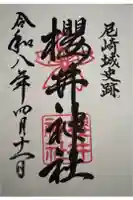 尼崎城史跡
櫻井神社
令和八年四月十一日